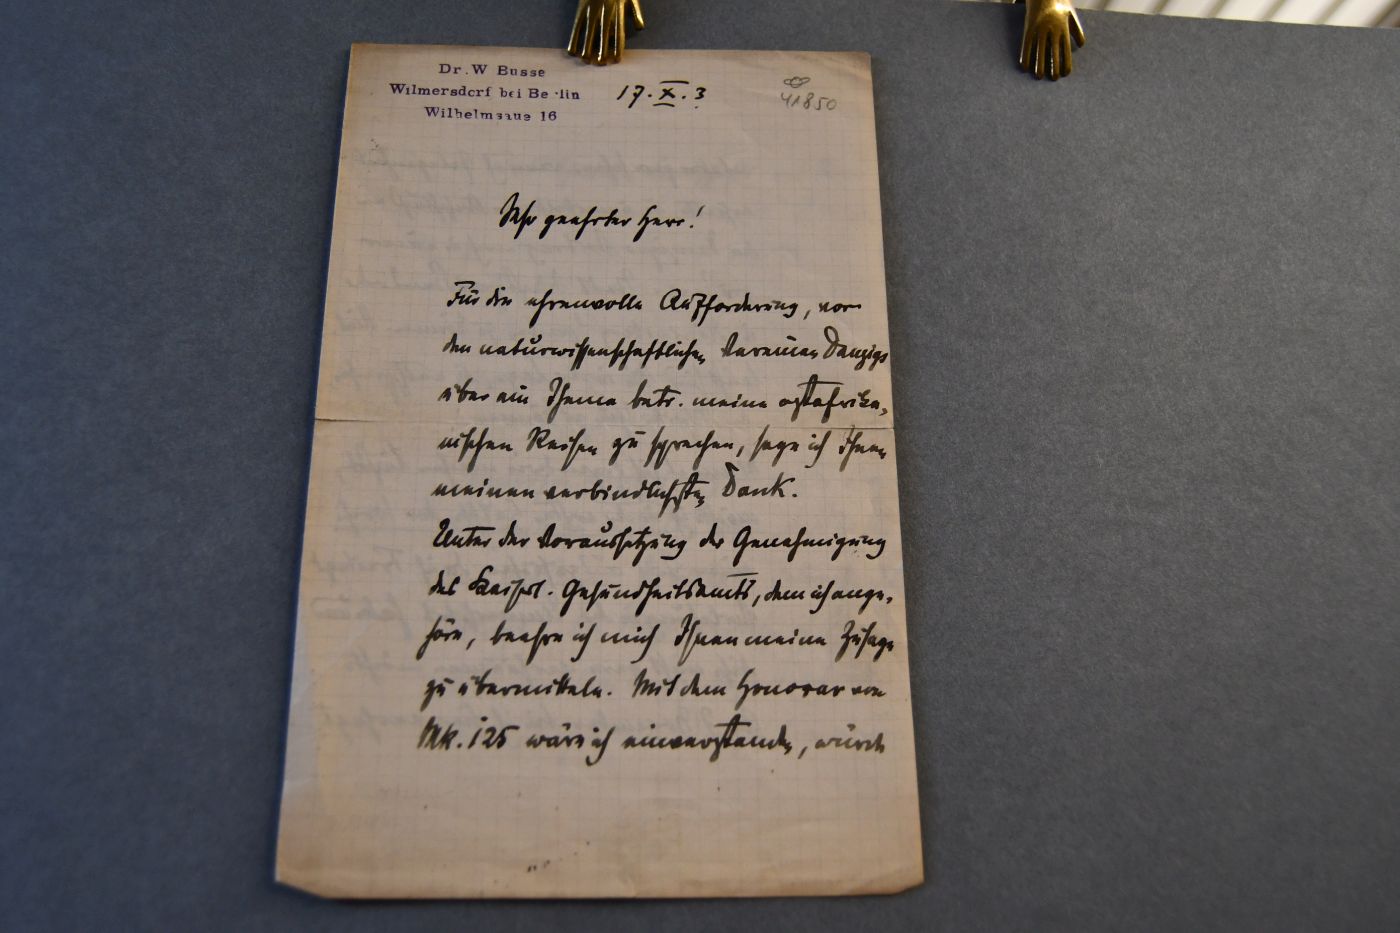 Dr. W Busse
Wilmersdorf bei Berlin
Wilhelmsaue 16
17. X. 3
41850
Sehr geehrter Herr!
Für die ehrenvolle Aufforderung, vor
den naturwissenschaftlichen Vereinen Danzigs
über ein Thema betr. meine ostafrika-
nischen Reisen zu sprechen, sage ich Ihnen
meinen verbindlichsten Dank.
Unter der Voraussetzung der Genehmigung
des Kaiserl. Gesundheitsamts, dem ich ange-
höre, beehre ich mich Ihnen meine Zusage
zu übermitteln. Mit dem Honorar von
Mk. 125 wäre ich einverstanden, würde